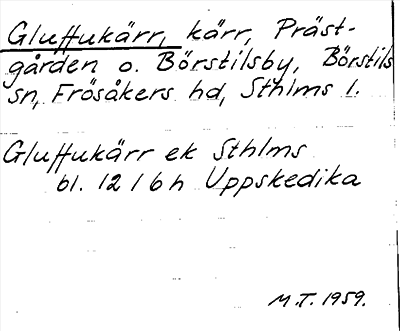 Gluffukärr, kärr, Präst-
gården o. Börstilsby, Börstils
sn, Frösåkers hd, Sthlms l.
Gluffukärr ek Sthlms
bl. 12 / 6 h Uppskedika
M.T. 1959.